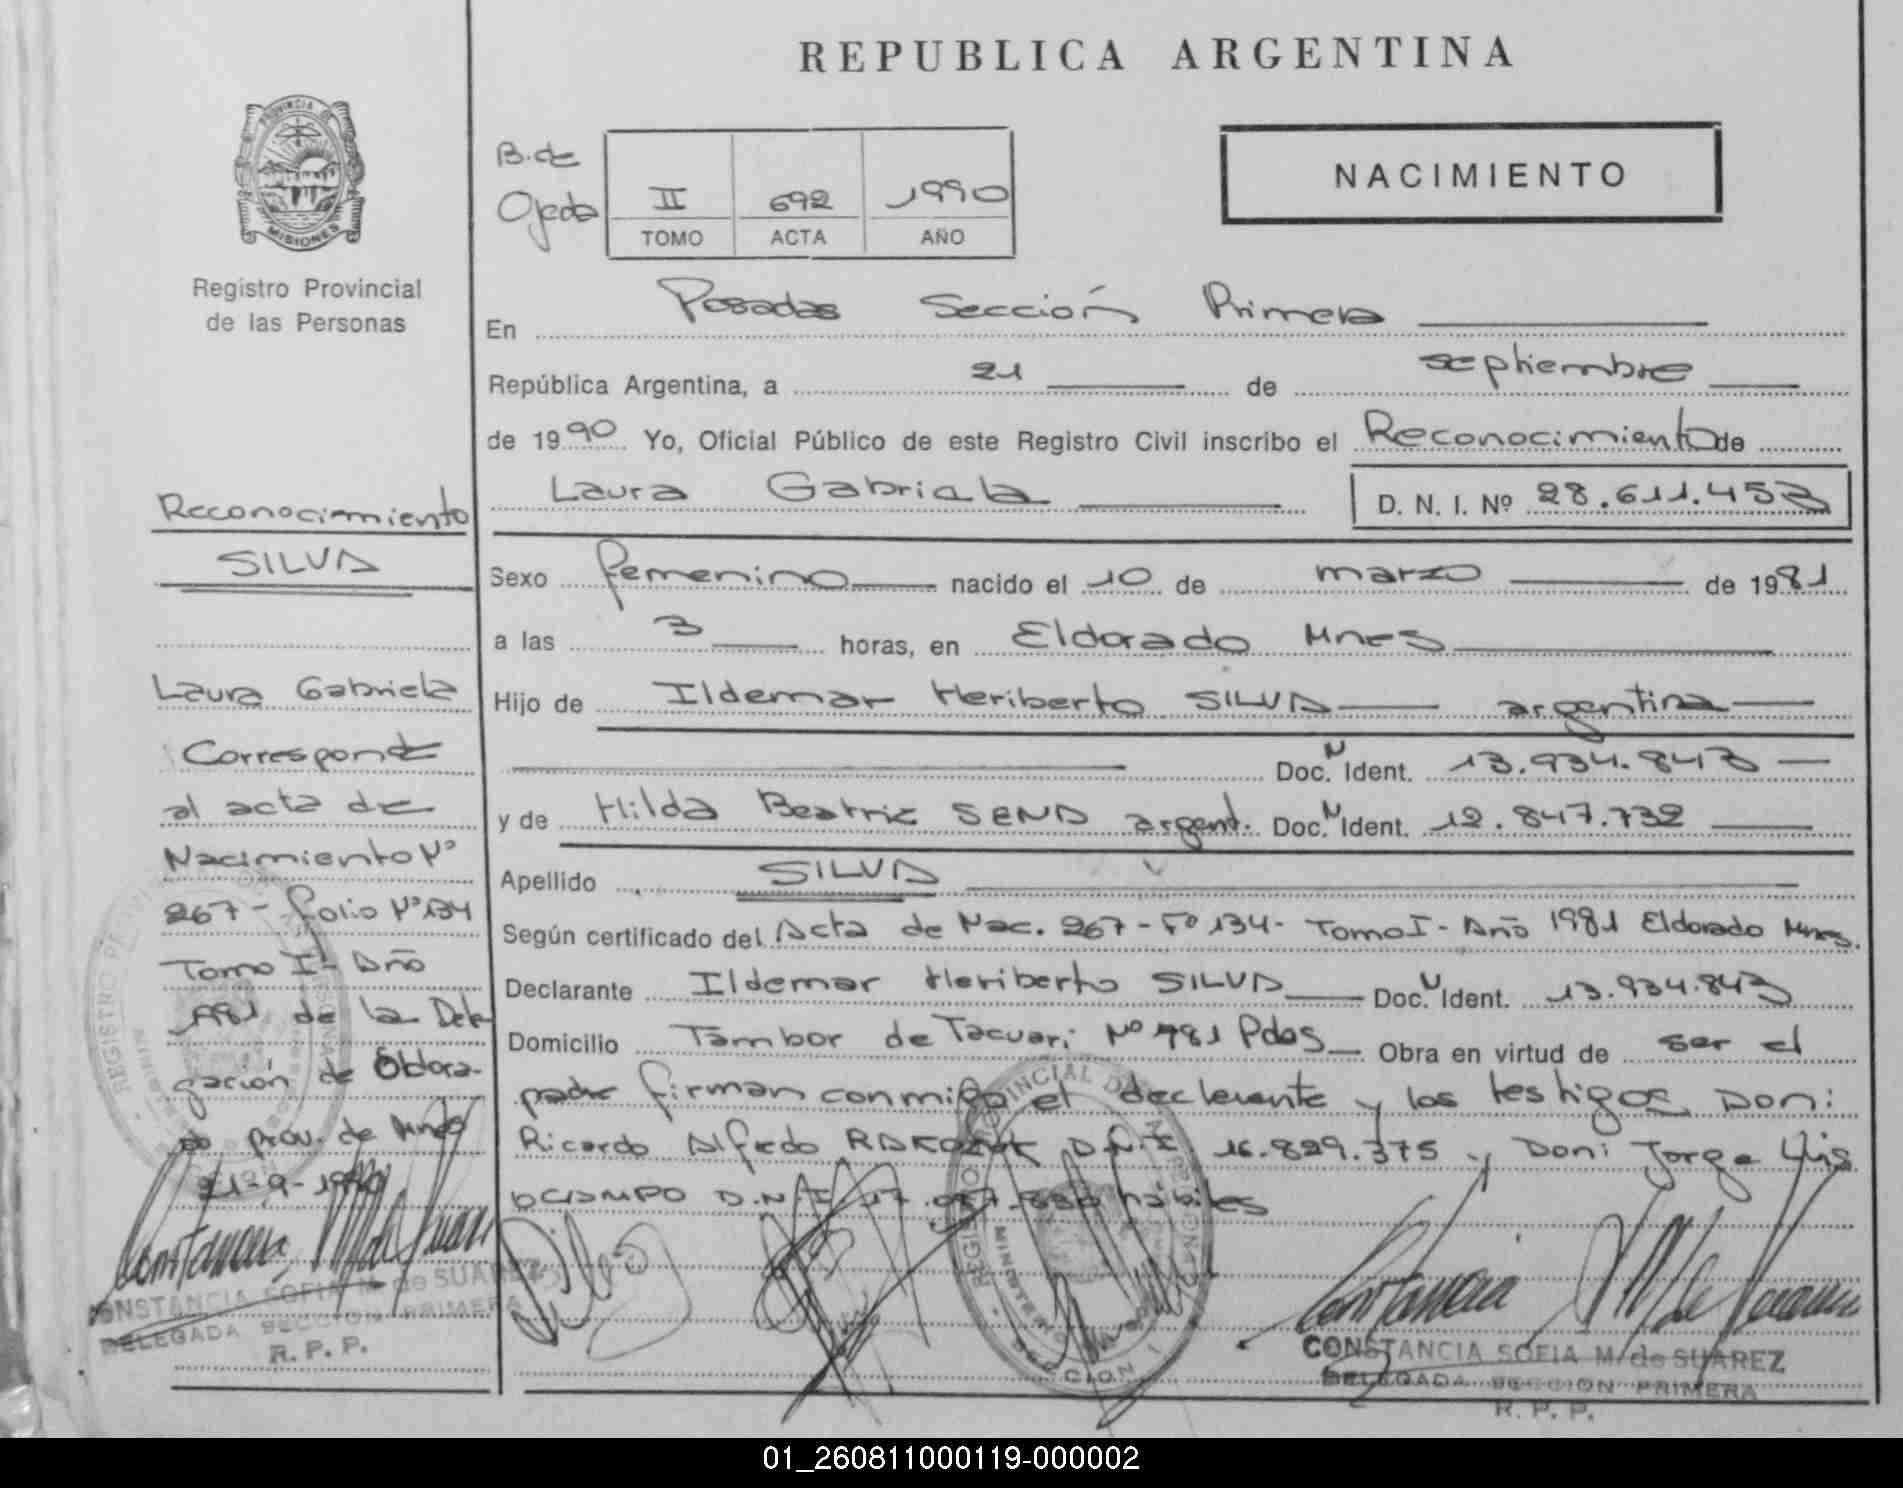 REPUBLICA ARGENTINA
PROVINCIA DE
MISIONES
Registro Provincial
de las Personas
B. de
Ojeda
II 692 1990
TOMO ACTA AÑO
NACIMIENTO
En Posadas Sección Primera
República Argentina, a 21 de septiembre
de 1990 Yo, Oficial Público de este Registro Civil inscribo el Reconocimiento de
Laura Gabriela D. N. I. Nº 28.611.453
Sexo femenino nacido el 10 de marzo de 1981
a las 3 horas, en Eldorado Mnes
Hijo de Ildemar Heriberto SILVA argentina
Doc. N Ident. 13.934.843
y de Hilda Beatriz SENA argent. Doc. N Ident. 12.847.732
Apellido SILVA
Según certificado del Acta de Nac. 267 - Fº 134 - Tomo I - Año 1981 Eldorado Mnes.
Declarante Ildemar Heriberto SILVA Doc. N Ident. 13.934.843
Domicilio Tambor de Tacuari Nº 781 Pdas Obra en virtud de ser el
padre firman conmigo el declarante y los testigos Don:
Ricardo Alfredo D.N.I. 16.829.375 y Don: Jorge Luis
OCAMPO D.N.I. 17. hábiles
Reconocimiento
SILVA
Laura Gabriela
Corresponde
al acta de
Nacimiento Nº
267 - folio Nº 134
Tomo I - Año
1981 de la Dele
gación de Eldora-
do prov. de Mnes
21-9-1990
CONSTANCIA SOFIA M. de SUAREZ
DELEGADA SECCION PRIMERA
R. P. P.
CONSTANCIA SOFIA M. de SUAREZ
DELEGADA SECCION PRIMERA
R. P. P.
01_260811000119-000002